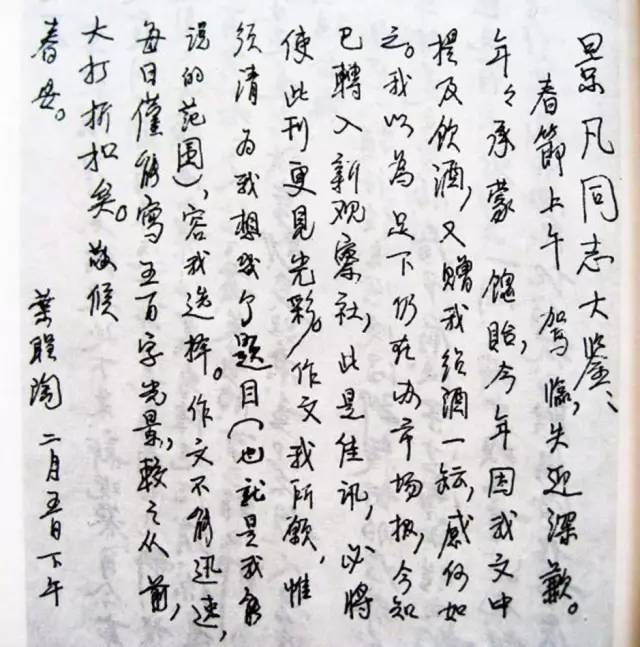 景凡同志大鉴、
春節上午 駕臨,失迎深歉。
年々承蒙 餽貽,今年因我文中
提及飲酒,又贈我绍酒一坛,感何如
之。我以為 足下仍在办市场报,今知
已轉入新观察社,此是佳讯,必將
使此刊更見光彩。作文我所願,惟
须请为我想幾个题目(也就是我家
说的范围),容我选择。作文不能迅速,
每日僅能寫五百字光景,較之从前,
大打折扣矣。敬候
春安。
葉聖陶 二月五日下午